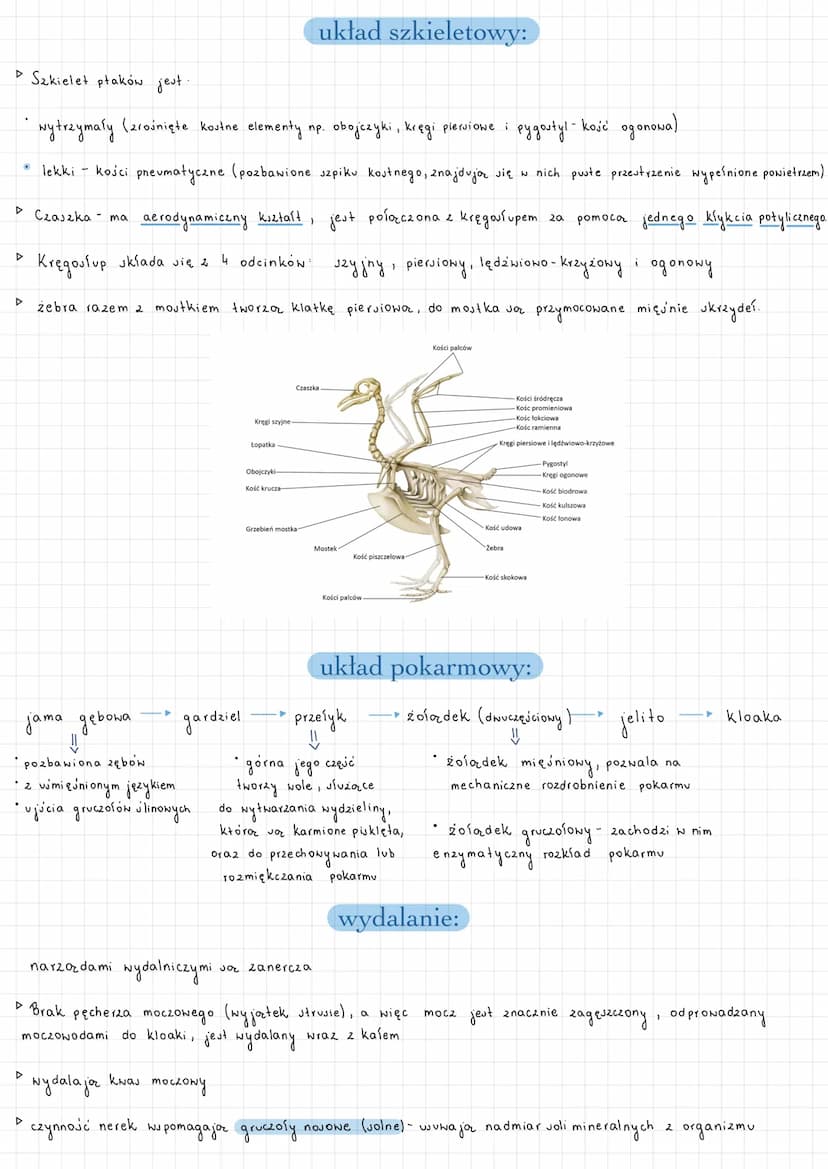 układ szkieletowy:
▷ Szkielet ptaków jest:
• wytrzymały (zrośnięte kostne elementy np. obojczyki, kręgi piersiowe i pygostyl - kość ogonowa)
• lekki - kości pneumatyczne (pozbawione szpiku kostnego, znajdują się w nich puste przestrzenie wypełnione powietrzem)
▷ Czaszka - ma aerodynamiczny kształt, jest połączona z kręgosłupem za pomocą jednego kłykcia potylicznego
▷ Kręgosłup składa się z 4 odcinków: szyjny, piersiowy, lędźwiowo-krzyżowy i ogonowy
▷ żebra razem z mostkiem tworzą klatkę piersiową, do mostka są przymocowane mięśnie skrzydeł.
Kości palców
Czaszka
Kości śródręcza
Kośc promieniowa
Kośc łokciowa
Kręgi szyjne
Kośc ramienna
Łopatka
Kręgi piersiowe i lędźwiowo-krzyżowe
Pygostyl
Obojczyki
Kręgi ogonowe
Kość krucza
Kość biodrowa
Kość kulszowa
Kość łonowa
Grzebień mostka
Kość udowa
Mostek
Żebra
Kość piszczelowa
Kość skokowa
Kości palców
układ pokarmowy:
jama gębowa → gardziel → przełyk → żołądek (dwuczęściowy) → jelito → kloaka
• pozbawiona zębów
• z umięśnionym językiem
• ujścia gruczołów ślinowych
• górna jego część
tworzy wole, służące
do wytwarzania wydzieliny,
którą są karmione pisklęta,
oraz do przechowywania lub
rozmiękczania pokarmu
• żołądek mięśniowy, pozwala na
mechaniczne rozdrobnienie pokarmu
• żołądek gruczołowy - zachodzi w nim
enzymatyczny rozkład pokarmu
wydalanie:
narządami wydalniczymi są zanercza
▷ Brak pęcherza moczowego (wyjątek strusie), a więc mocz jest znacznie zagęszczony, odprowadzany
moczowodami do kloaki, jest wydalany wraz z kałem
▷ wydalają kwas moczowy
▷ czynność nerek wspomagają gruczoły nosowe (solne) - usuwają nadmiar soli mineralnych z organizmu